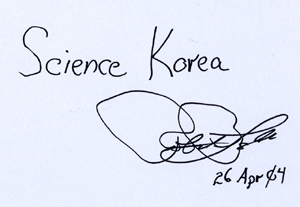 Science Korea
26 Apr 04